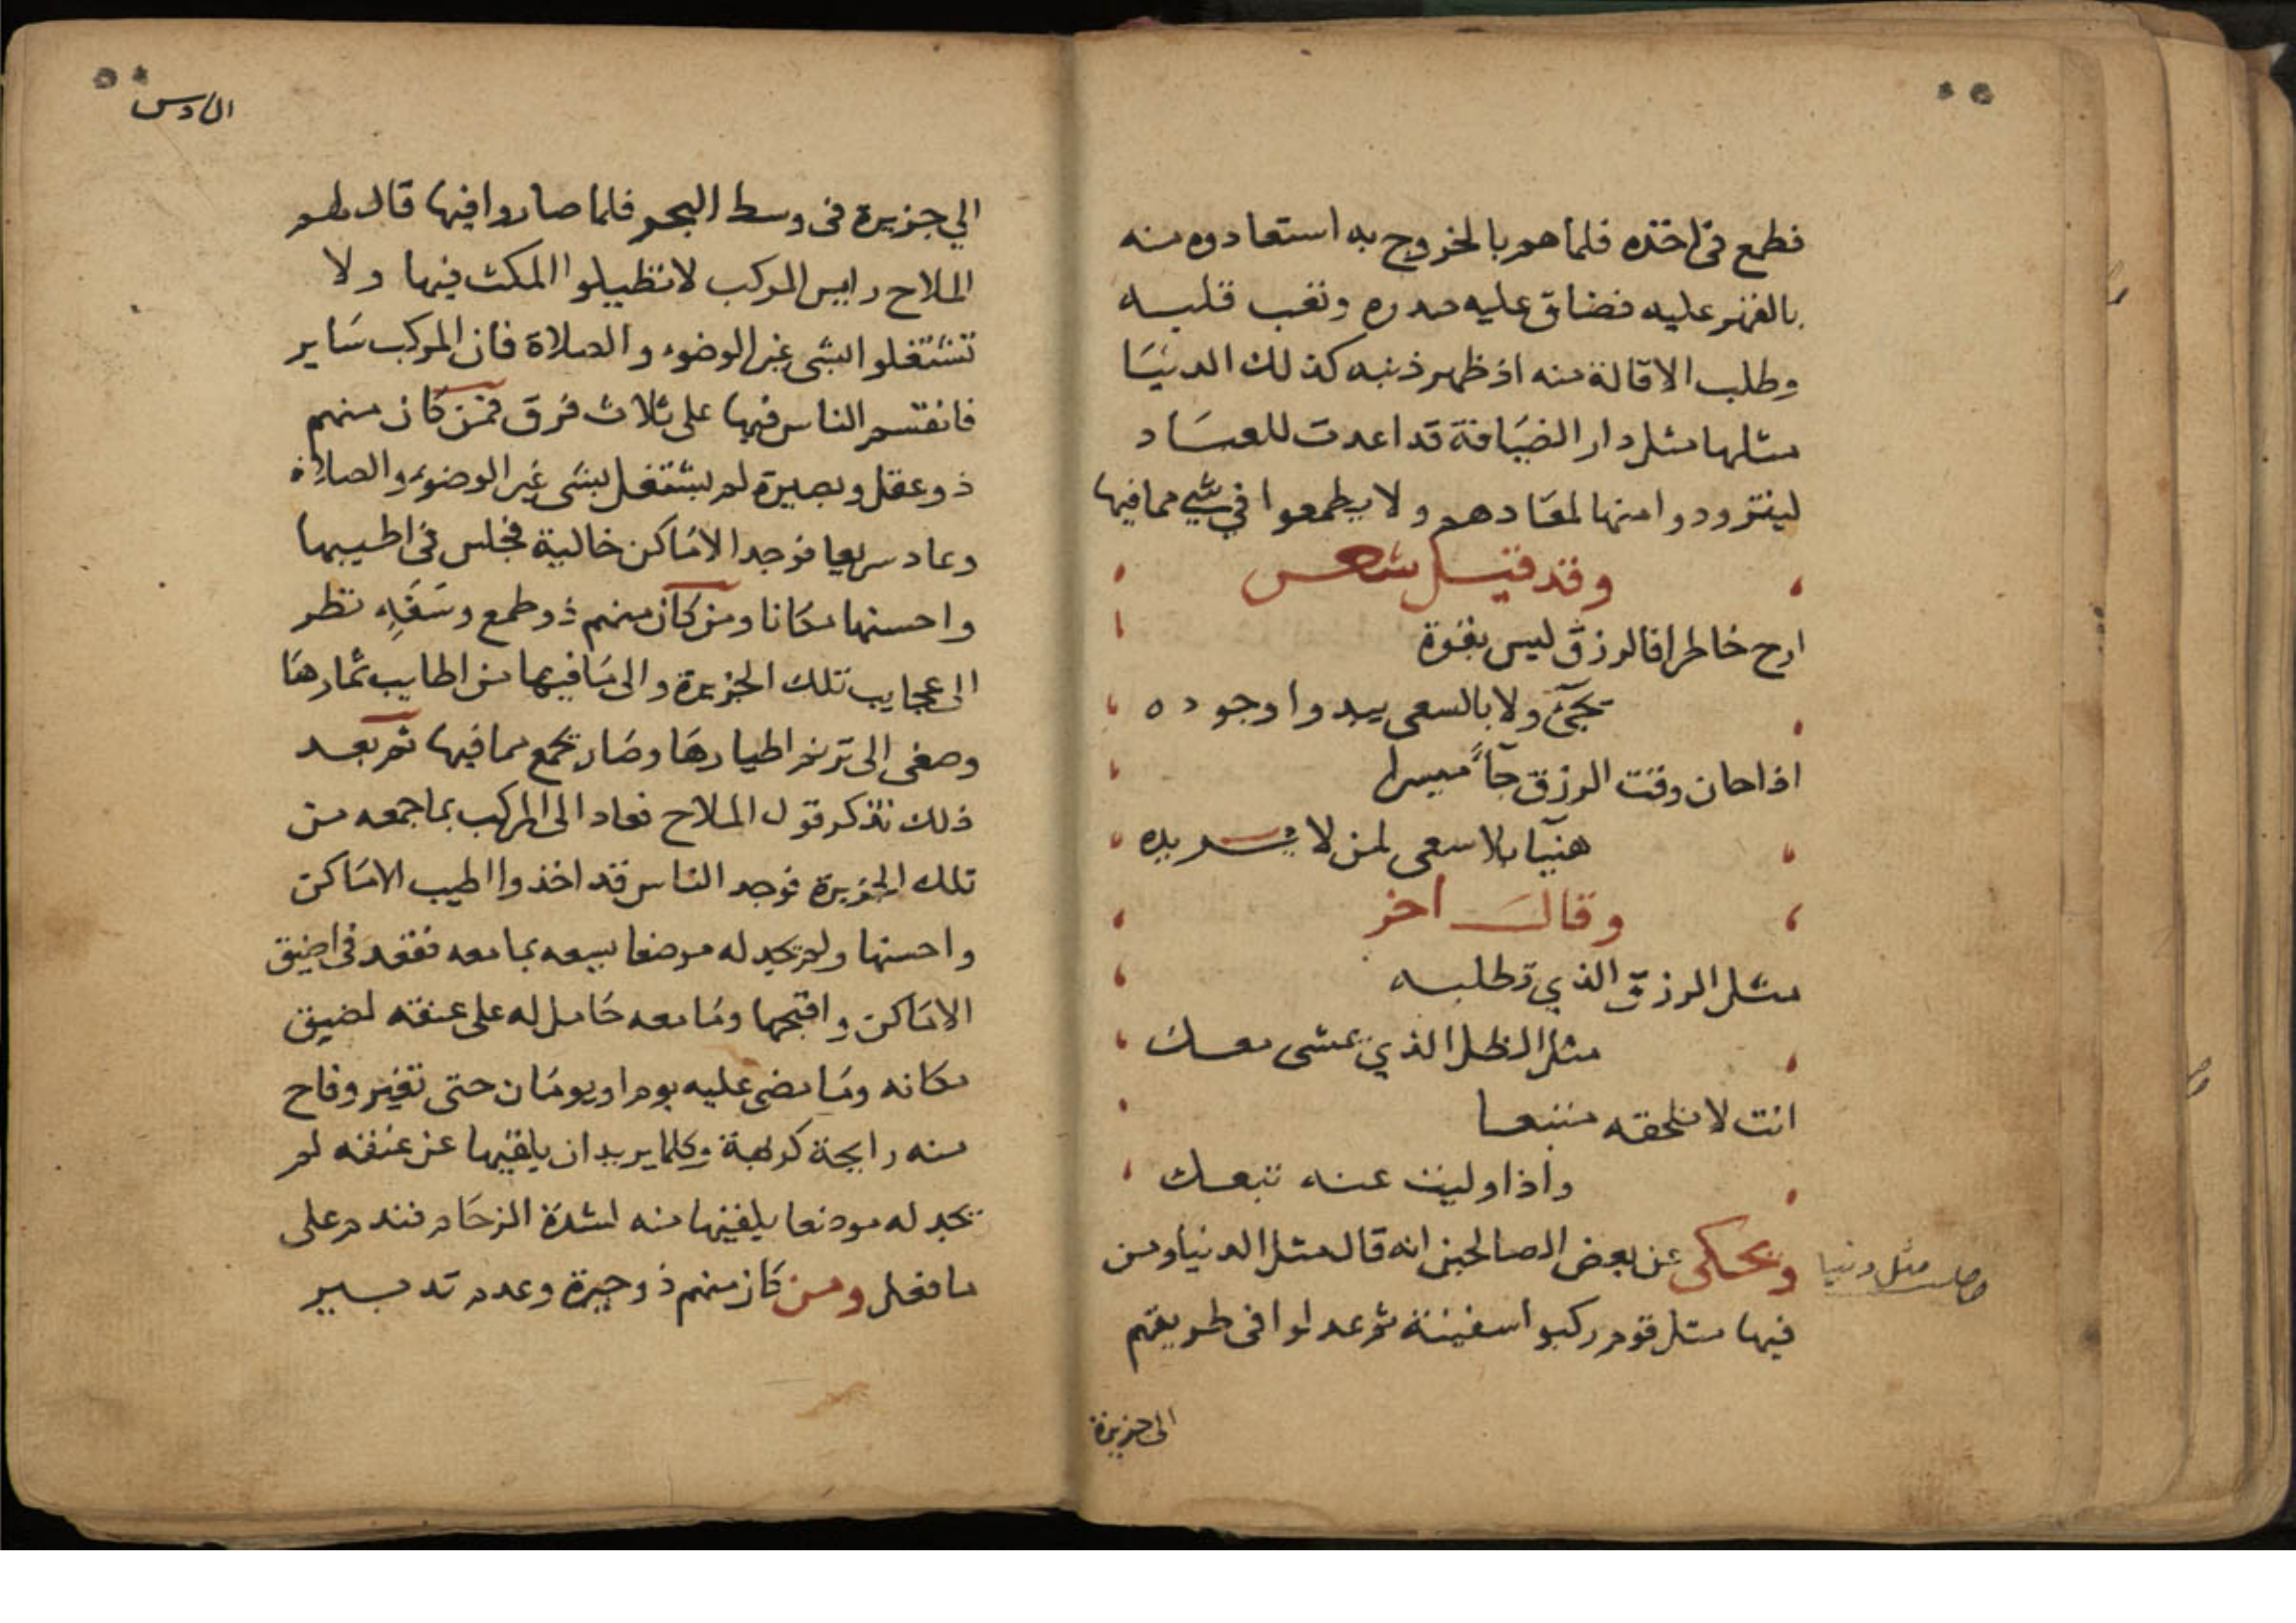 فطمع في اخذه فلما هم بالخروج به استعادوه منه
بالقهر عليه فضاق عليه صدره وتعب قلبه
وطلب الاقالة منه اذ ظهر ذنبه كذلك الدنيا
مثلها مثل دار الضيافة قد اعدت للعباد
ليتزودوا منها لمعادهم ولا يطمعوا في شي مما فيها
وقد قيل شعر
ارح خاطرا فالرزق ليس بقوة
يجئ ولا بالسعي يبدوا وجوده
اذا حان وقت الرزق جاً ميسرا
هنيآ بلا سعى لمن لا يريده
وقال اخر
مثل الرزق الذي تطلبه
مثل الظل الذي يمشى معك
انت لا تلحقه متبعا
واذا وليت عنه تبعك
ويحكى عن بعض الصالحين انه قال مثل الدنيا ومن
مثل دنيا
فيها مثل قوم ركبوا سفينة ثم عدلوا في طريقهم
الى جزيرة
السادس
الي جزيرة في وسط البحر فلما صاروا فيها قال لهم
الملاح رايس المركب لا تطيلوا المكث فيها ولا
تشتغلوا بشى غير الوضوء والصلاة فان المركب سَاير
فانقسم الناس فيها على ثلاث فرق فمن كان منهم
ذو عقل وبصيرة لم يشتغل بشى غير الوضوء والصلاة
وعاد سريعا فوجد الامَاكن خالية فجلس في اطيبها
واحسنها مكانا ومن كان منهم ذو طمع وسَفَهٍ نظر
الى عجايب تلك الجزيرة والى مَا فيها من اطايب ثمارهَا
وصغى الى ترنم اطيارهَا وصَار يجمع مما فيها ثم بعد
ذلك تذكر قول الملاح فعاد الى المركب بما جمعه من
تلك الجزيرة فوجد الناس قد اخذوا اطيب الامَاكن
واحسنها ولم يجد له موضعا يسعه بما معه فقعد في اضيق
الامَاكن واقبحها ومَا معه حَامل له على عنقه لضيق
مكانه ومَا مضى عليه يوم او يومَان حتى تغير وفاح
منه رايحة كريهة وكلما يريد ان يلقيها عن عنقه لم
يجد له موضعا يلقيها منه لشدة الزحَام فندم على
ما فعل ومن كان منهم ذو حيرة وعدم تدبير